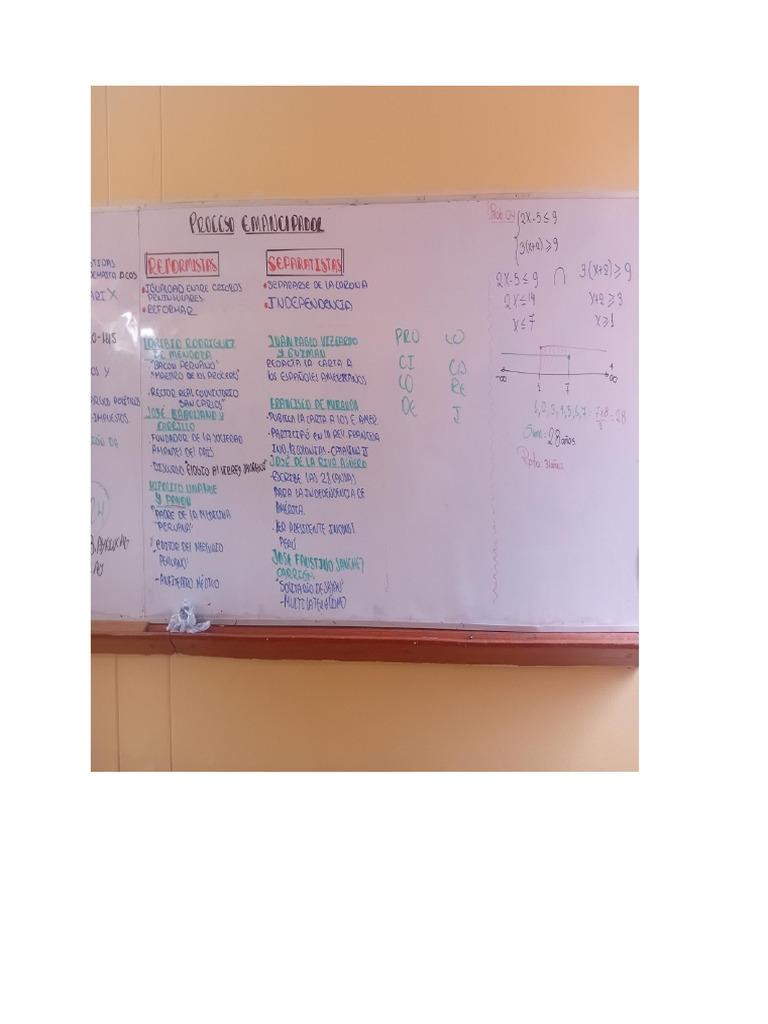 PROCESO EMANCIPADOR
REFORMISTAS
• IGUALDAD ENTRE CRIOLLOS
PENINSULARES
• REFORMAR
TORIBIO RODRIGUEZ
DE MENDOZA
"BACON PERUANO"
"MAESTRO DE LOS PROCERES"
- RECTOR REAL CONVICTORIO
SAN CARLOS"
JOSÉ BAQUIJANO Y
CARRILLO
- FUNDADOR DE LA SOCIEDAD
AMANTES DEL PAÍS
- DISCURSO "ELOGIO AL VIRREY JAUREGUI"
HIPOLITO UNANUE
Y PAVON
"PADRE DE LA MEDICINA
"PERUANA"
EDITOR DEL MERCURIO
"PERUANO"
- ANFITEATRO MÉDICO
SEPARATISTAS
• SEPARARSE DE LA CORONA
• INDEPENDENCIA
JUAN PABLO VIZCARDO
Y GUZMAN
REDACTA LA CARTA A
LOS ESPAÑOLES AMERICANOS
FRANCISCO DE MIRANDA
- PUBLICA LA CARTA A LOS E. AMER
- PARTICIPÓ EN LA REV. FRANCESA
JOSÉ DE LA RIVA AGÜERO
- ESCRIBE LAS 28 CAUSAS
PARA LA INDEPENDENCIA DE
AMÉRICA.
PERÚ
JOSE FAUSTINO SANCHEZ
CARRIÓN
"SOLITARIO DE SAYAN"
PRO LO
CI
CO RE
DE I
ARI X
IMPUESTOS.
24
Prob. 04
2x-5 ≤ 9
3(x+2) ≥ 9
2x-5 ≤ 9 ∩ 3(x+2) ≥ 9
2x ≤ 14 x+2 ≥ 3
x ≤ 7 x ≥ 1
-∞ 1 7 +∞
1, 2, 3, 4, 5, 6, 7 = 7x8/2 = 28
Suma: 28 años
Rpta: